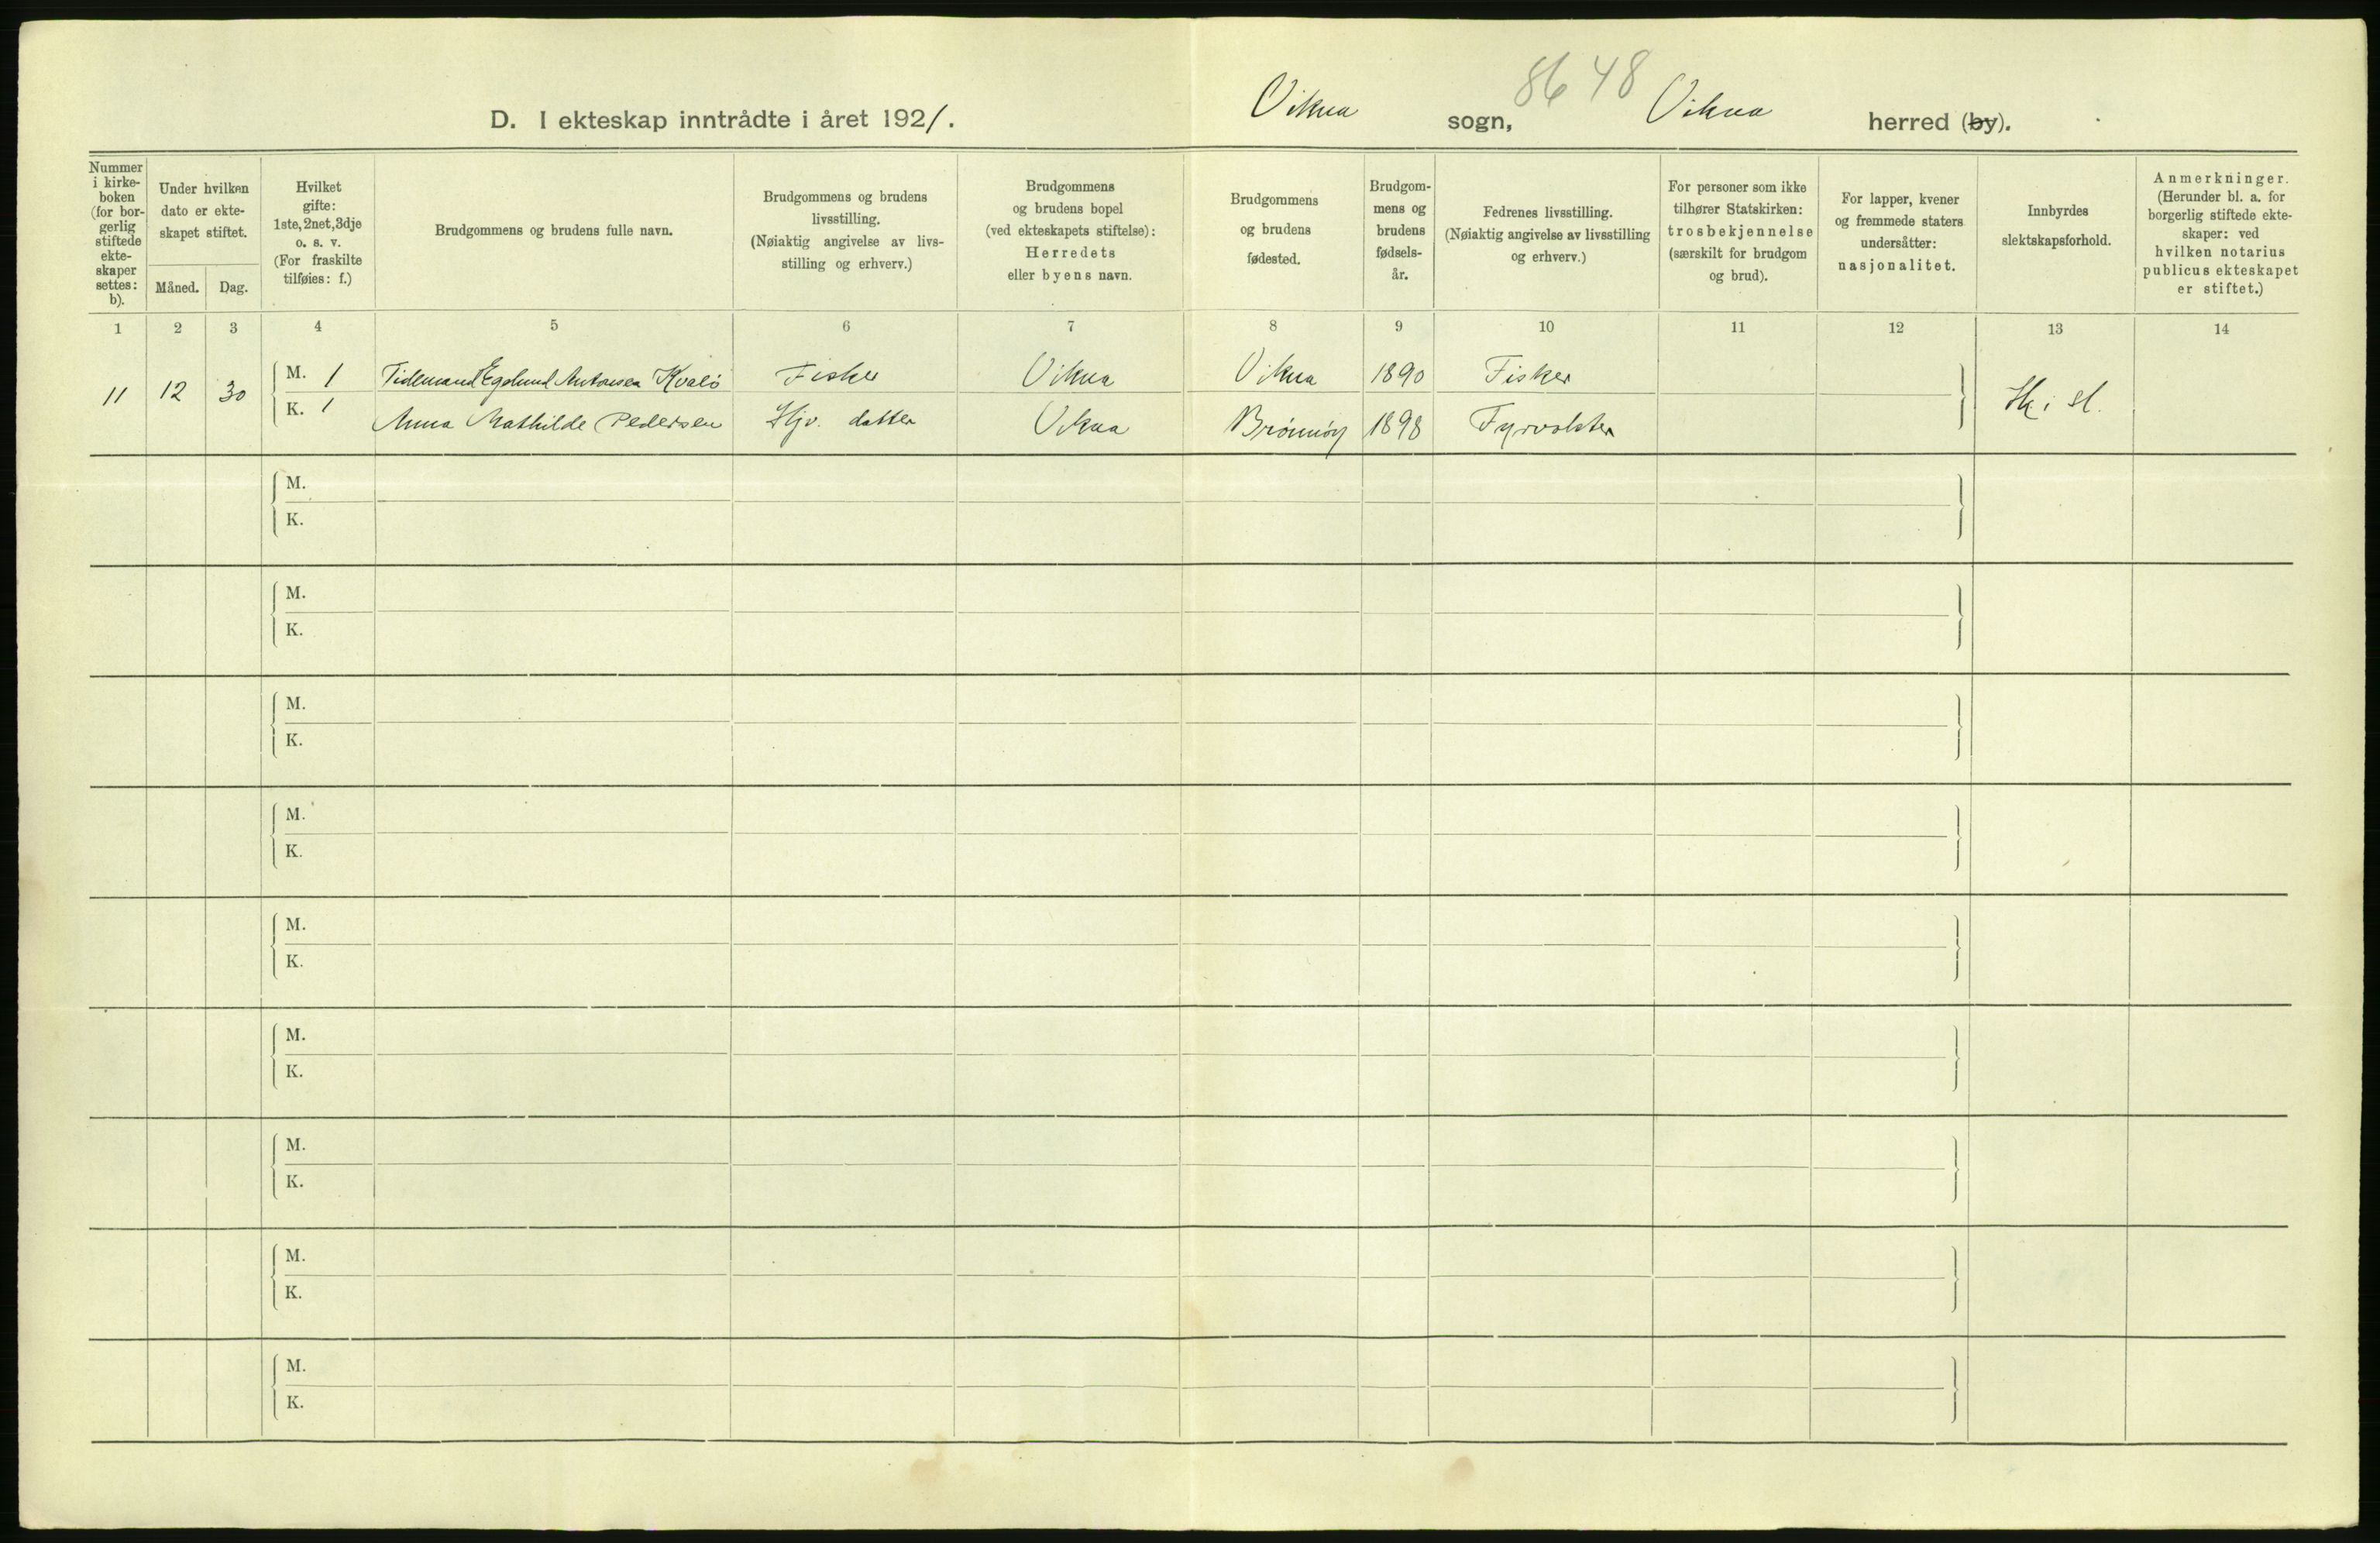 8648
D. I ekteskap inntrådte i året 1921.
Vikna sogn, Vikna herred (by).
Nummer i kirke-boken (for bor-gerlig stiftede ekte-skaper settes: b).
Under hvilken dato er ekte-skapet stiftet.
Måned. Dag.
Hvilket gifte: 1ste, 2net, 3dje o. s. v. (For fraskilte tilføies: f.)
Brudgommens og brudens fulle navn.
Brudgommens og brudens livsstilling. (Nøiaktig angivelse av livs-stilling og erhverv.)
Brudgommens og brudens bopel (ved ekteskapets stiftelse): Herredets eller byens navn.
Brudgommens og brudens fødested.
Brudgom-mens og brudens fødsels-år.
Fedrenes livsstilling. (Nøiaktig angivelse av livsstilling og erhverv.)
For personer som ikke tilhører Statskirken: trosbekjennelse (særskilt for brudgom og brud).
For lapper, kvener og fremmede staters undersåtter: nasjonalitet.
Innbyrdes slektskapsforhold.
Anmerkninger. (Herunder bl. a. for borgerlig stiftede ekte-skaper: ved hvilken notarius publicus ekteskapet er stiftet.)
1 2 3 4 5 6 7 8 9 10 11 12 13 14
11 12 30 M. 1 Tidemand Egelund Antonsen Kvalø Fisker Vikna Vikna 1890 Fisker
K. 1 Anna Mathilde Pedersen Hjv. datter Vikna Brønnøy 1898 Fyrvokter
Ik. i sl.
M.
K.
M.
K.
M.
K.
M.
K.
M.
K.
M.
K.
M.
K.
M.
K.
M.
K.